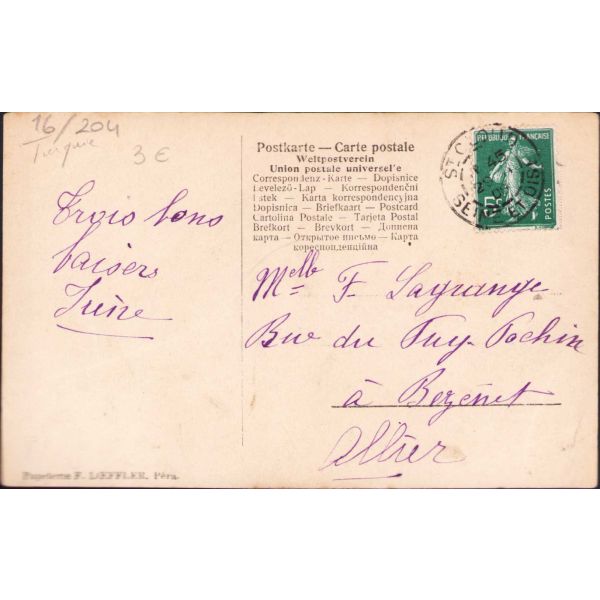 16/204
Turquie
3€
Postkarte — Carte postale
Weltpostverein
Union postale universel'e
Correspondenz-Karte — Dopisnice
Levelező-Lap — Korrespondenční
Lístek — Karta korrespondencyjna
Dopisnica — Briefkaart — Postcard
Cartolina Postale — Tarjeta Postal
Brefkort — Brevkort — Дописна
карта — Открытое письмо — Карта
кореспонденційна
ST CLOUD
SEINE ET OISE
FRANÇAISE
5c
POSTES
Trois bons
baisers
Irène
Melle F. Lagrange
Rue du Puy-Pochin
à Bezenet
Allier
Papeterie F. LŒFFLER, Péra.